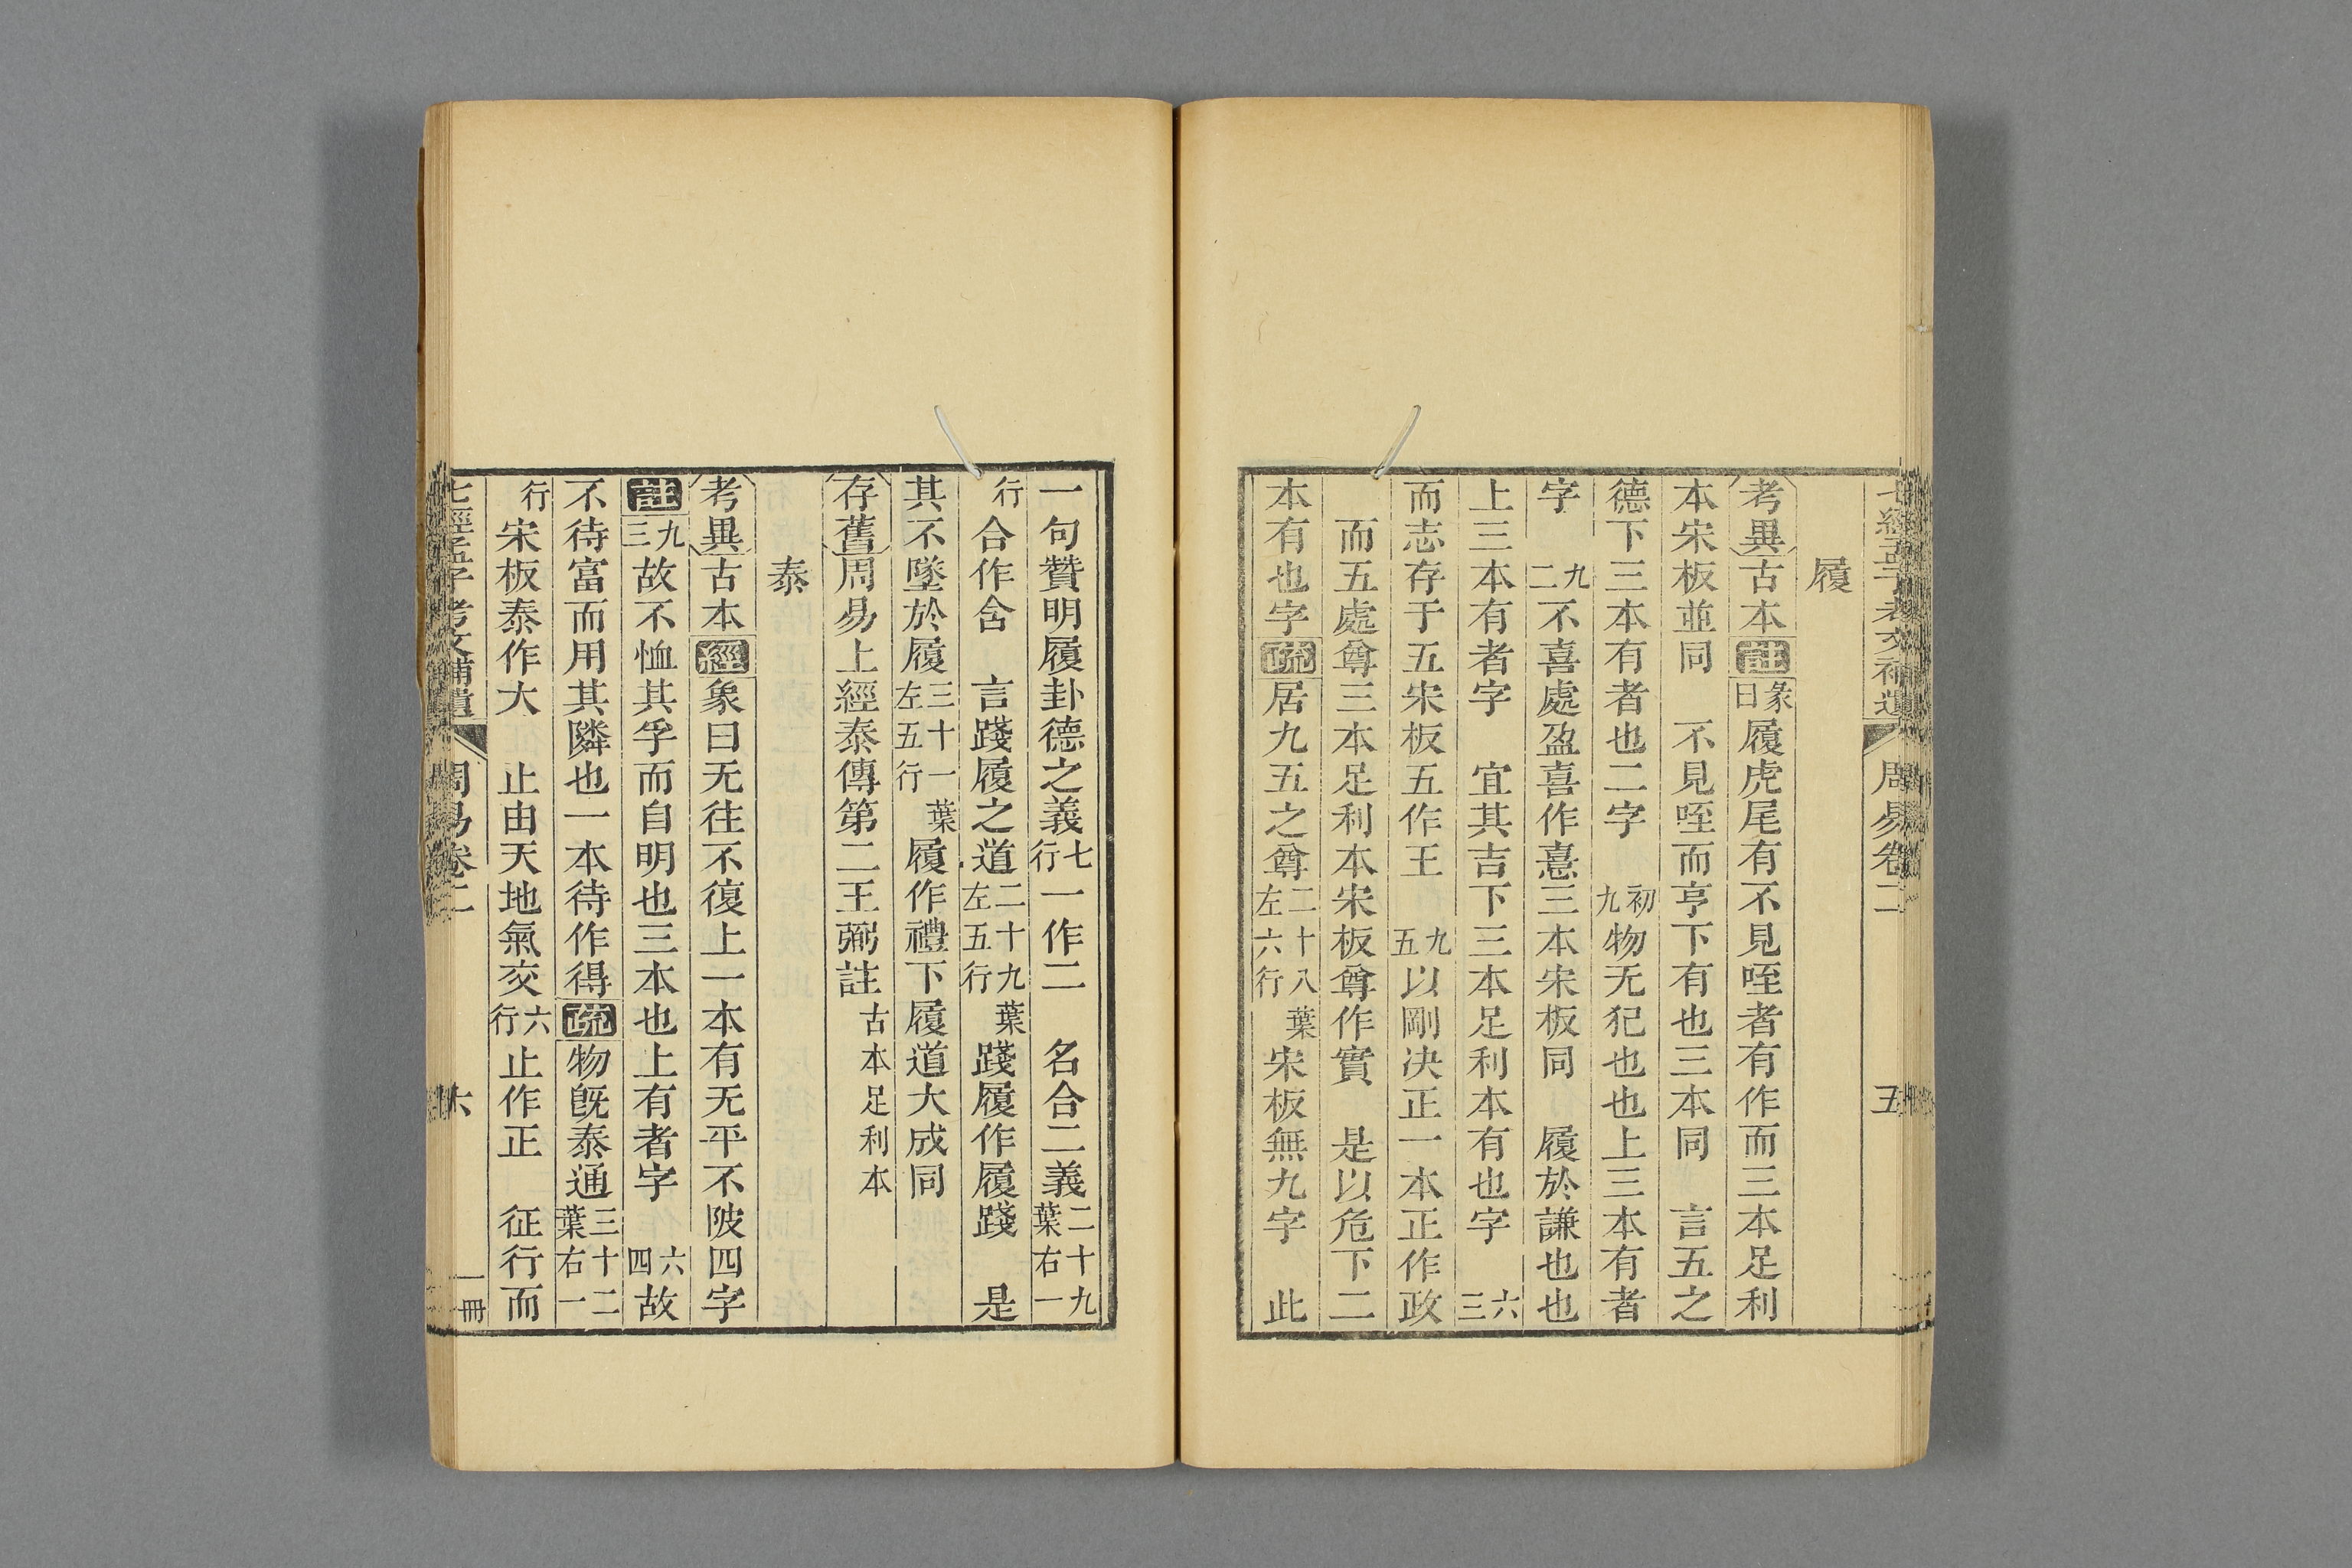 七經孟子考文補遺 周易卷二 五
履
考異古本註彖曰履虎尾有不見咥者有作而三本足利
本宋板並同 不見咥而亨下有也三本同 言五之
德下三本有者也二字 初九物无犯也也上三本有者
字 九二不喜處盈喜作憙三本宋板同 履於謙也也
上三本有者字 宜其吉下三本足利本有也字 六三
而志存于五宋板五作王 九五以剛决正一本正作政
而五處尊三本足利本宋板尊作實 是以危下二
本有也字疏居九五之尊二十八葉左六行宋板無九字 此
一句贊明履卦德之義七行一作二 名合二義二十九葉右一
行合作舍 言踐履之道二十九葉左五行踐履作履踐 是
其不墜於履三十一葉左五行履作禮下履道大成同
存舊周易上經泰傳第二王弼註古本足利本
泰
考異古本經象曰无往不復上一本有无平不陂四字
註九三故不恤其孚而自明也三本也上有者字 六四故
不待富而用其隣也一本待作得疏物旣泰通三十二葉右一
行宋板泰作大 止由天地氣交六行止作正 征行而
七經孟子考文補遺 周易卷二 六 一冊